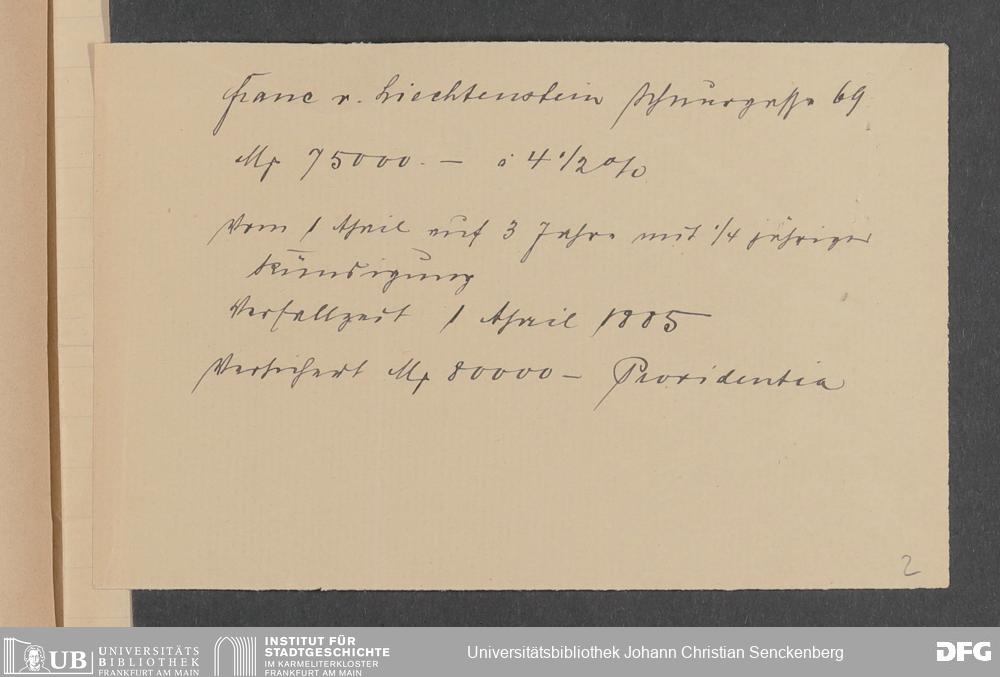 Franc v. Liechtenstein Schnurgasse 69
Mk 75000. — à 4 1/2 %
Vom 1 April auf 3 Jahre mit 1/4 jähriger
Kündigung
Verfallzeit 1 April 1885
Versichert Mk 80000 — Providentia
2
UB UNIVERSITÄTS
BIBLIOTHEK
FRANKFURT AM MAIN
INSTITUT FÜR
STADTGESCHICHTE
IM KARMELITERKLOSTER
FRANKFURT AM MAIN
Universitätsbibliothek Johann Christian Senckenberg
DFG